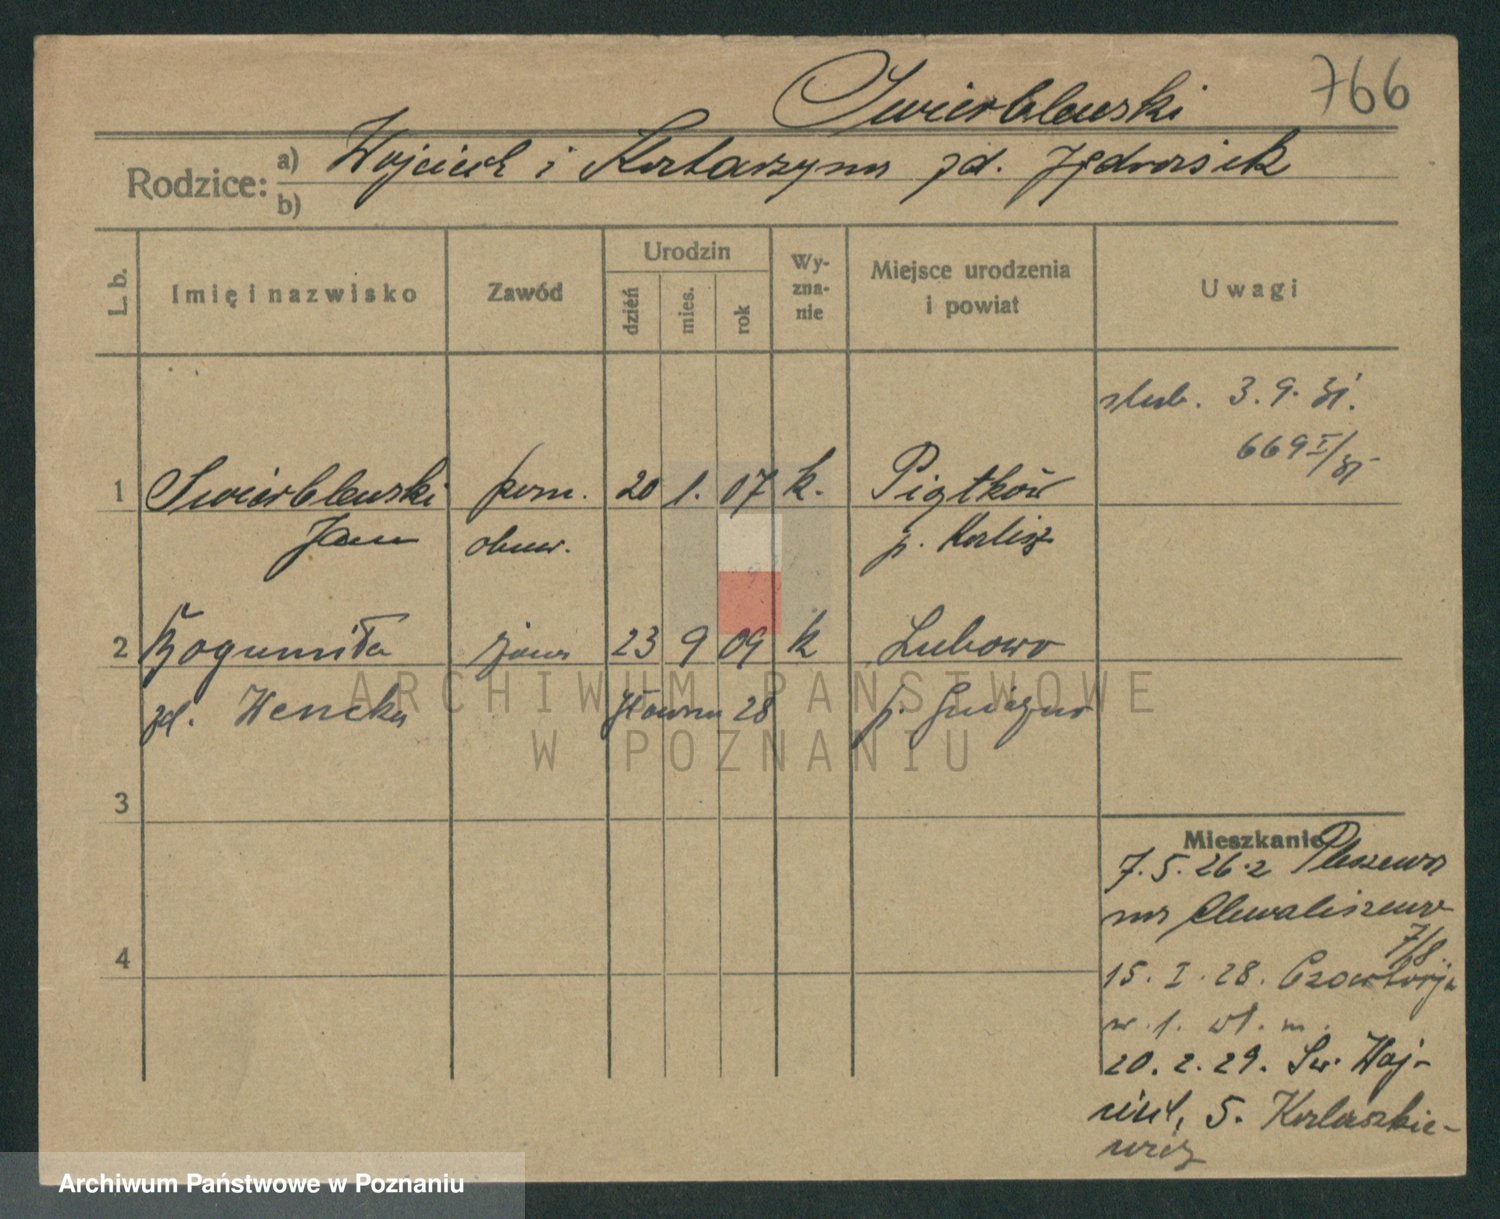 766
Swierblewski
Rodzice: a) Wojciech i Katarzyna zd. Jędrasiek
b)
L. b.
Imię i nazwisko
Zawód
Urodzin
dzień
mies.
rok
Wy-
zna-
nie
Miejsce urodzenia
i powiat
Uwagi
ślub. 3.9.31.
669 I/31
1 Swierblewski pom. 20 1. 07 k. Piątków
Jan obuw. p. Kalisz
2 Bogumiła żona 23 9 09 k Lubowo
zd. Główna 28 p. Gniezno
3
4
Mieszkanie
7.5.26 z Pleszewa
na Chwaliszewo
7/8.
15. I. 28.
w. 1. wł. m.
20. 2. 29. Św. Woj-
ciech, 5.
ARCHIWUM PAŃSTWOWE
W POZNANIU
Archiwum Państwowe w Poznaniu